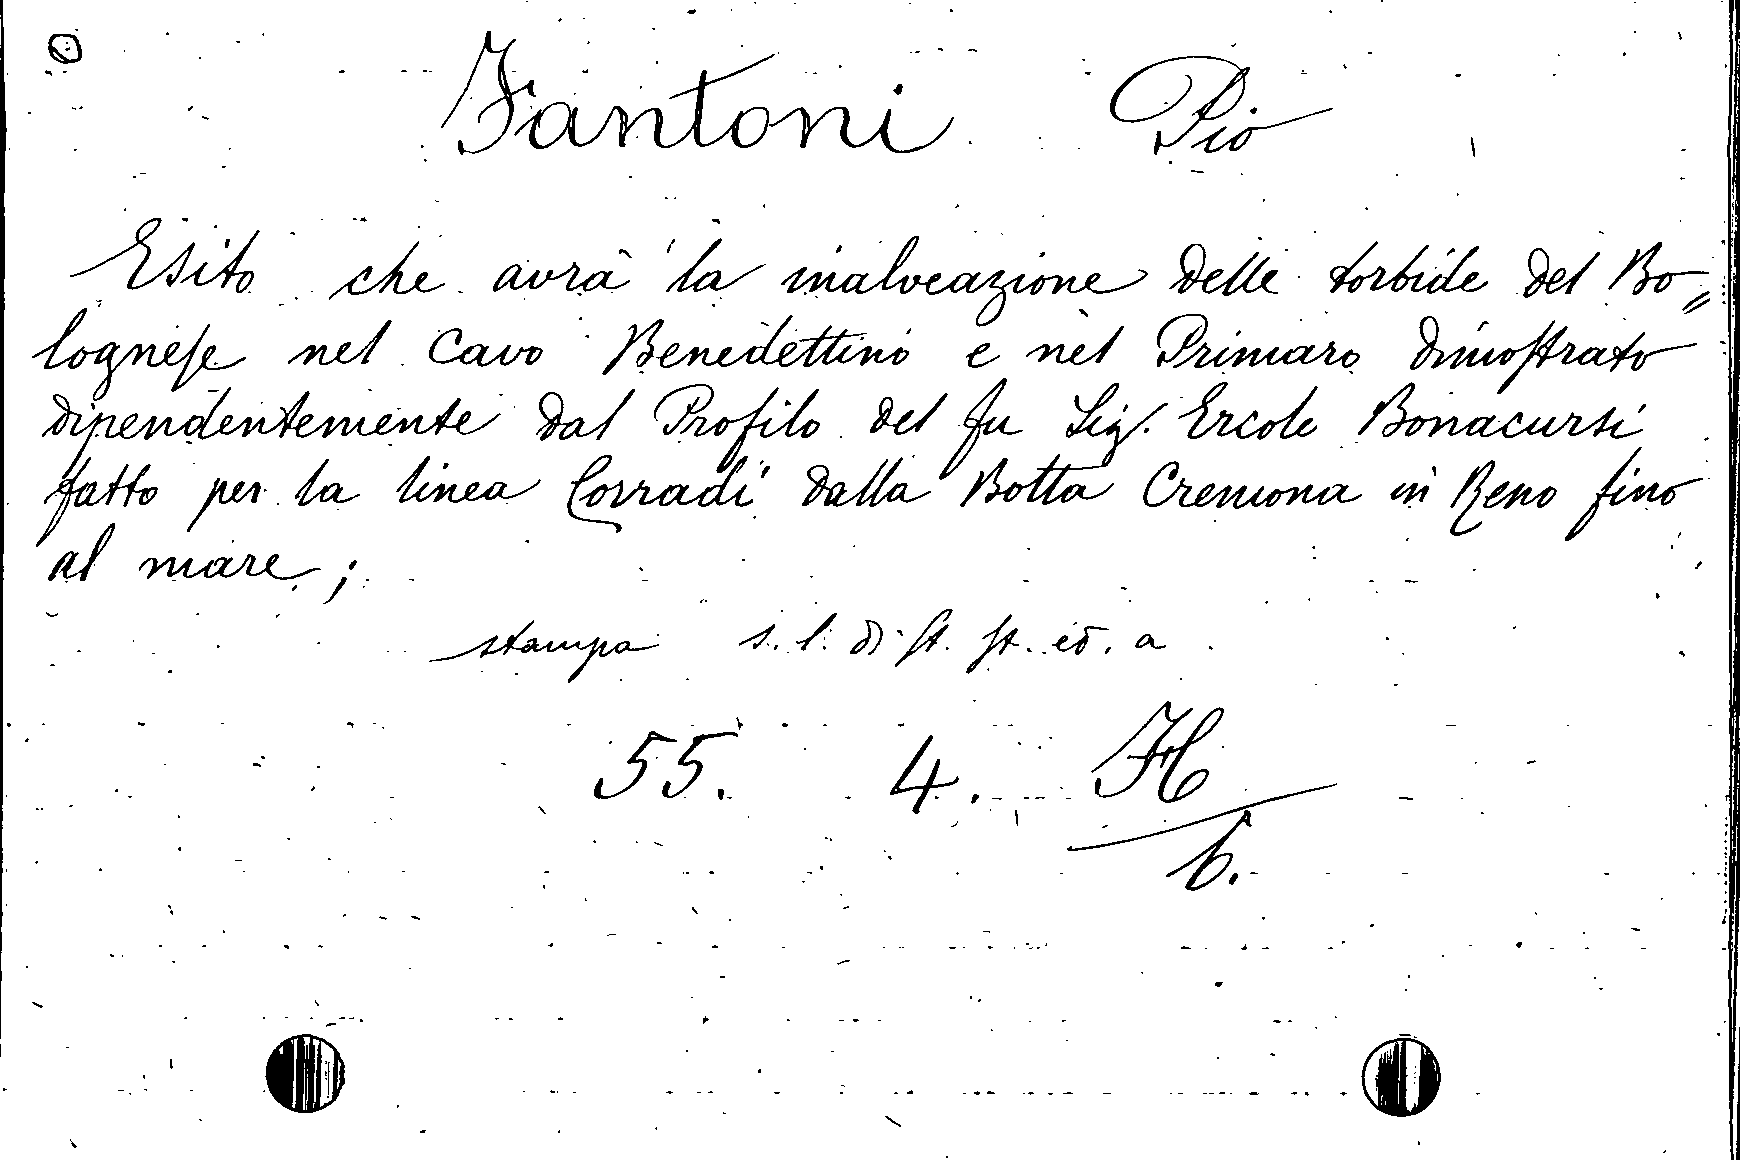 Fantoni Pio
Esito che avrà la inalveazione delle torbide del Bo=
lognese nel Cavo Benedettino e nel Primaro dimostrato
dipendentemente dal Profilo del fu Sig. Ercole Bonacursi
fatto per la linea Corradi dalla Botta Cremona in Reno fino
al mare;
stampa s. l. di st. st. ed. a
55. 4. H
6.